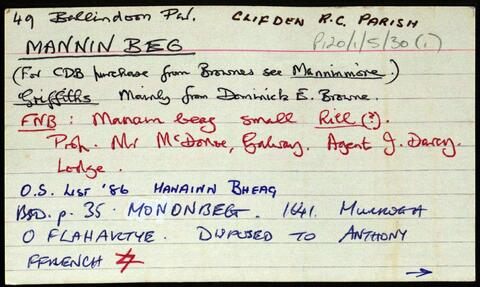 49 Ballindoon Par. CLIFDEN R.C. PARISH
P120/1/5/30 (1)
MANNIN BEG
(For CDB purchase from Brownes see Manninmore.)
Griffiths Mainly from Dominick E. Browne.
FNB : Manam beag small Rill (?).
Prop. Mr McDonoe, Galway. Agent J. Darcy.
Lodge.
O.S. LIST '86 MANAINN BHEAG
BSD. p. 35. MONONBEGG. 1641.
O FLAHAVTYE. DISPOSED TO ANTHONY
FFRENCH
→